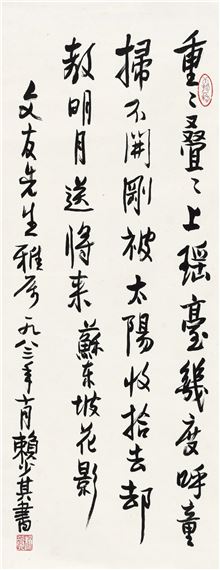 重〻叠〻上瑶臺幾度呼童
掃不開剛被太陽收拾去却
教明月送将来 蘇东坡花影
文友先生雅屬 一九八三年十月賴少其書